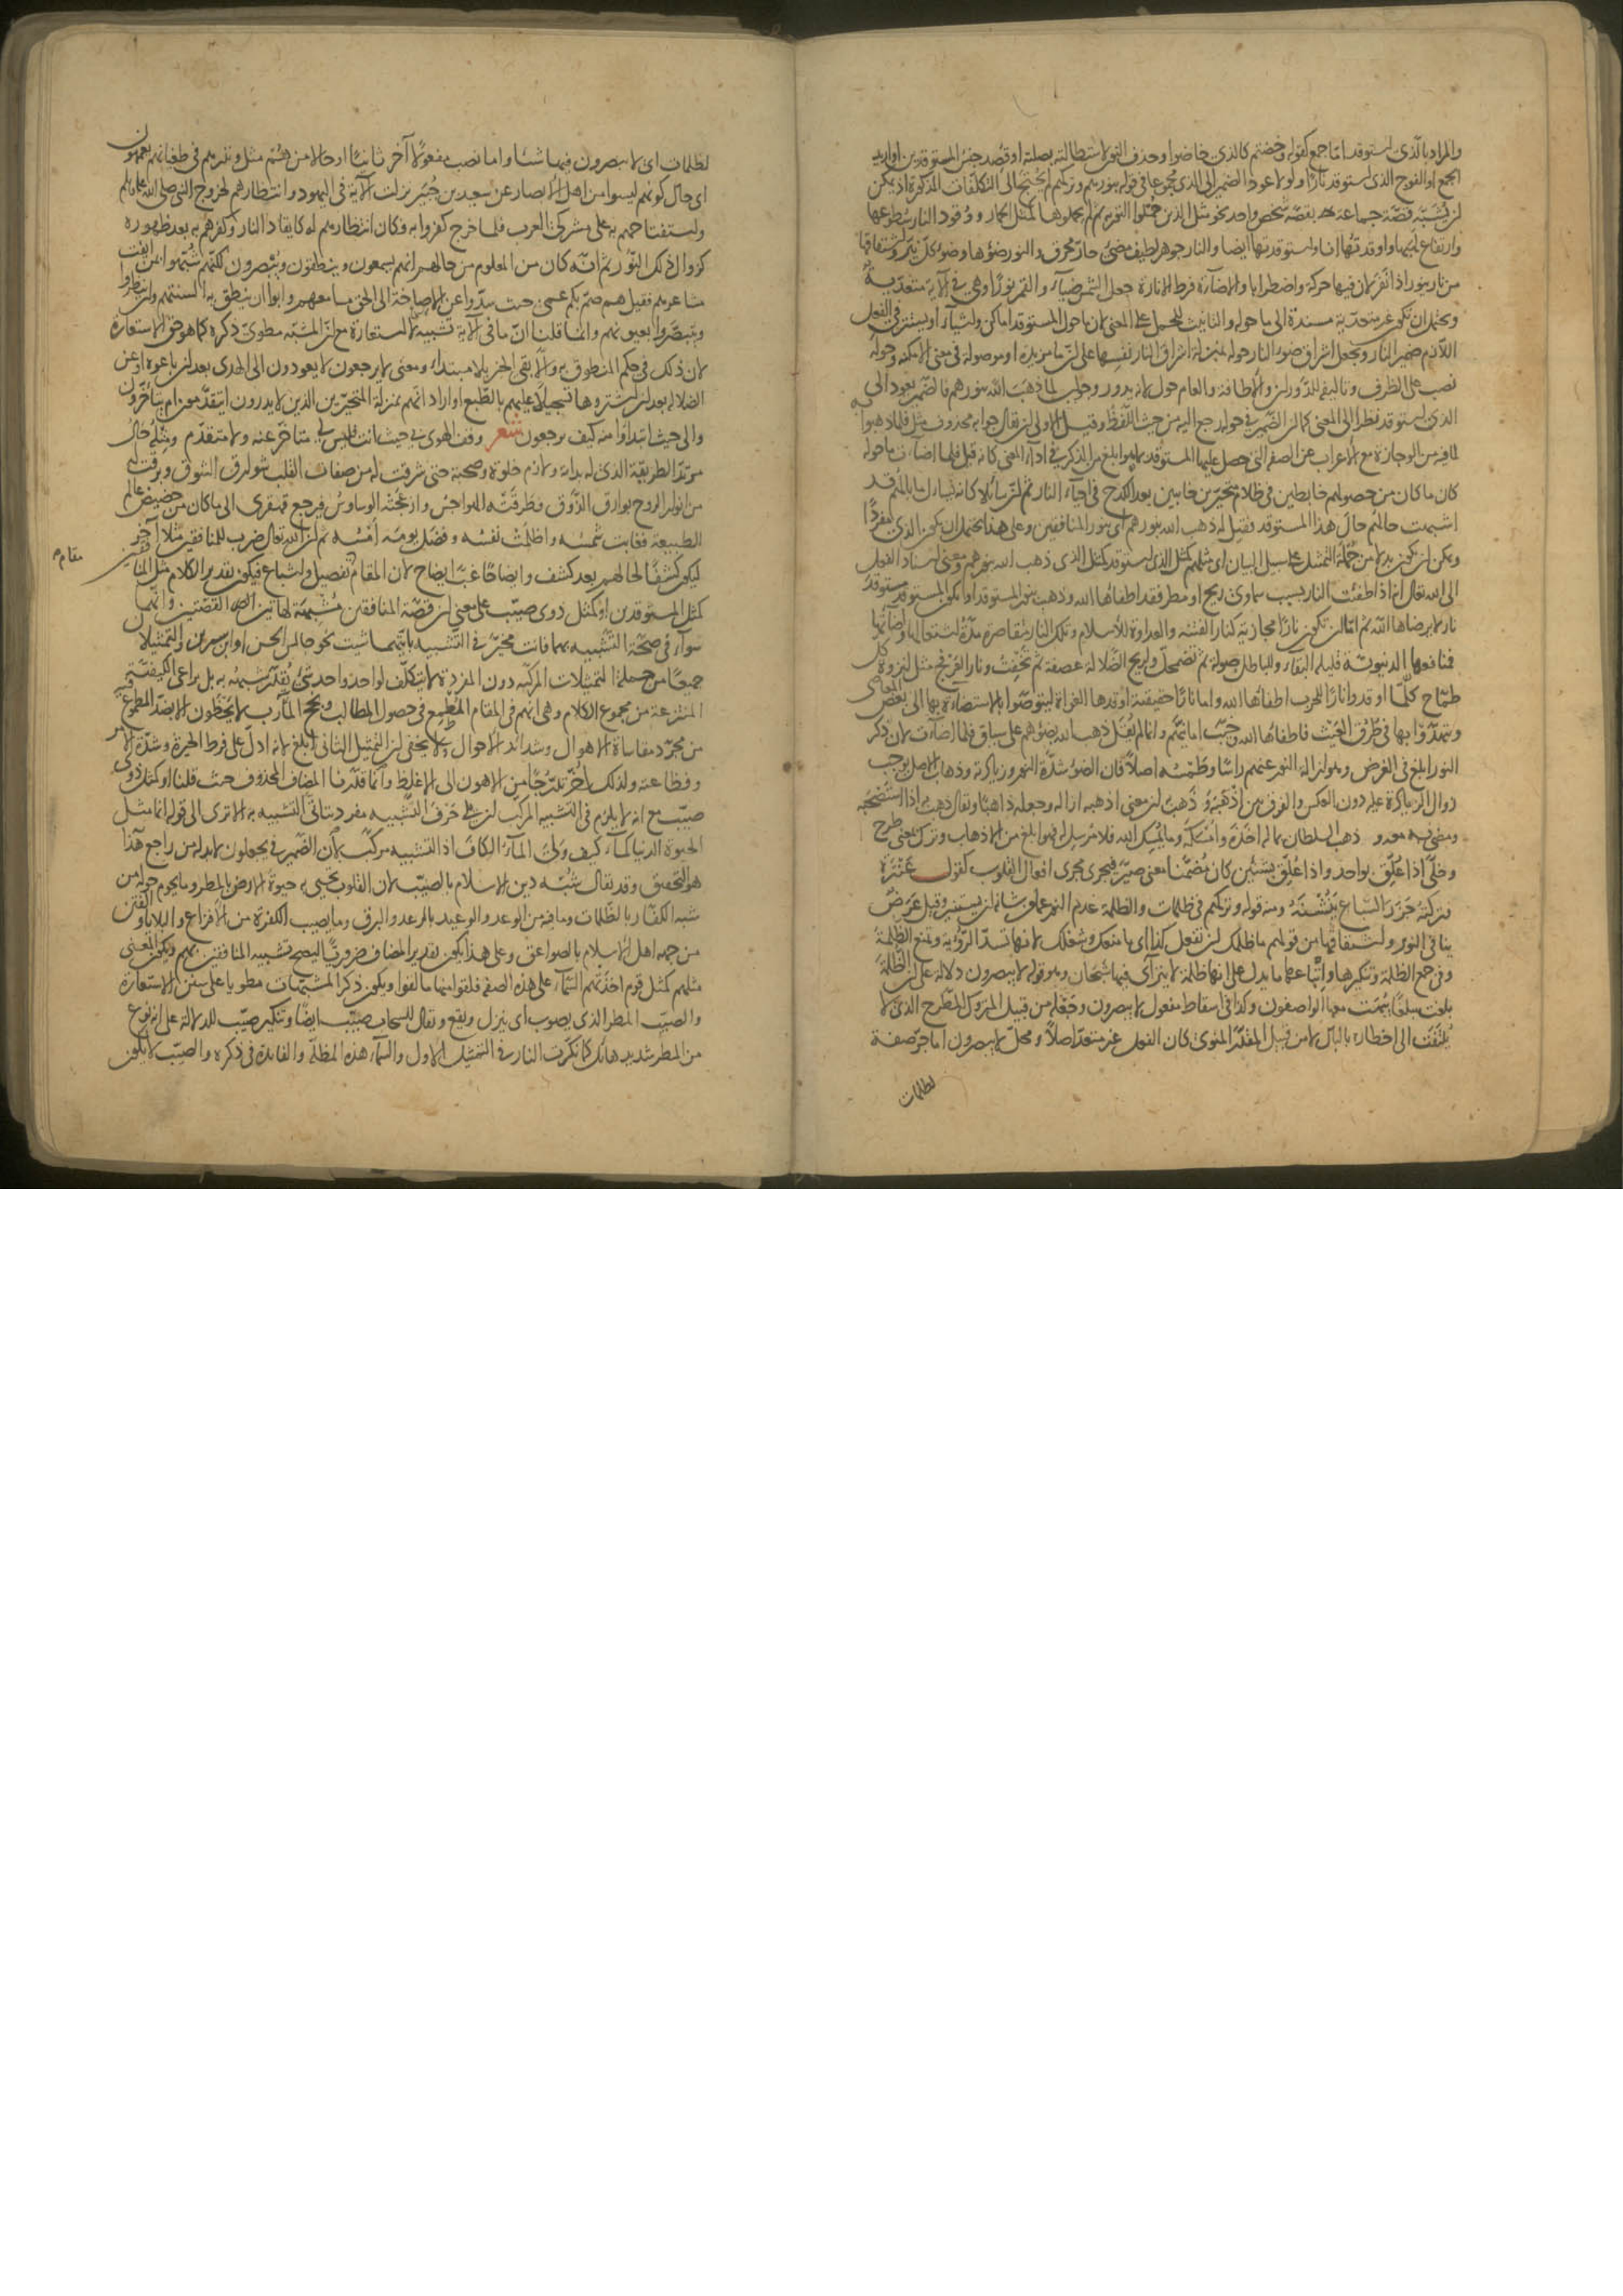 والمراد بالذي استوقد اما جمع كقوله وخضتم كالذي خاضوا وحذف النون لاستطالته بصلته او قصد جنس المستوقدين او اريد
الجمع او الفوج الذي استوقد نارا ولولا عود الضمير الى الذي مجموعا في قوله بنورهم وتركهم لم يحتج الى التكلفات المذكورة اذ يمكن
ان يشبه قصة جماعة بقصة شخص واحد نحو مثل الذين حملوا التورية ثم لم يحملوها كمثل الحمار ووقود النار سطوعها
وارتفاع لهبها واوقدتها انا واستوقدتها ايضا والنار جوهر لطيف مضئ حار محرق والنور ضوؤها وضوء كل نير واشتقاقها
من نار ينور اذا نفر لان فيها حركة واضطرابا والاضاءة فرط الانارة جعل الشمس ضياء والقمر نورا وهي في الاية متعدية
ويحتمل ان تكون غير متعدية مسندة الى ما حوله والتانيث للحمل على المعنى لان ما حول المستوقد اماكن واشياء او يستتر في الفعل
اللازم ضمير النار ويجعل اشراق ضوء النار حوله بمنزلة اشراق النار نفسها على ان ما مزيدة او موصولة في معنى الامكنة وحوله
نصب على الظرف وتاليفه للدوران والاطافة والعام حول لانه يدور وجواب لما ذهب الله بنورهم فالضمير يعود الى
الذي استوقد نظرا الى المعنى كما ان الضمير في حوله رجع اليه من حيث اللفظ وقيل الاولى ان يقال جوابه محذوف مثل فلما ذهبوا به
لما فيه من الوجازة مع الاعراب عن الصفة التي حصل عليها المستوقد بما هو ابلغ من الذكر في اداء المعنى كانه قيل فلما اضاءت ما حوله
كان ما كان من حصولهم خابطين في ظلام متحيرين خائبين بعد الكدح في احياء النار ثم ان سائلا كانه تساءل ما بالهم قد
اشبهت حالهم حال هذا المستوقد فقيل له ذهب الله بنورهم اي بنور المنافقين وعلى هذا يحتمل ان يكون الذي مفردا
ويمكن ان يكون بدلا من جملة التمثيل على سبيل البيان اي مثلهم كمثل الذي استوقد كمثل الذي ذهب الله بنورهم ومعنى اسناد الفعل
الى الله تعالى انه اذا طفئت النار بسبب سماوي ريح او مطر فقد اطفأها الله وذهب بنور المستوقد او يكون المستوقد مستوقد
نار لا يرضاها الله ثم اما ان تكون نارا مجازية كنار الفتنة والعداوة للاسلام وتلك النار متقاصرة مدة اشتعالها واضاءتها
فمنافعها الدنيوية قليلة البقاء وللباطل صولة ثم تضمحل ولريح الضلالة عصفة ثم تخفت ونار العرفج مثل لنزوة كل
طماح كلما اوقدوا نارا للحرب اطفاها الله واما نارا حقيقية اوقدها الغواة ليتوصلوا بالاستضاءة بها الى بعض المعاصي
ويتهدوا بها في طرق العيث فاطفاها الله وخيب امانيهم وانما لم يقل ذهب الله بضوئهم على سياق فلما اضاءت لان ذكر
النور ابلغ في الغرض وهو ازالة النور عنهم راسا وطمسه اصلا فان الضوء شدة النور وزيادته وذهاب الاصل يوجب
زوال الزيادة عليه دون العكس والفرق بين اذهبه وذهب به ان معنى اذهبه ازاله وجعله ذاهبا ويقال ذهب به اذا استصحبه
ومضى به معه وذهب السلطان بماله اخذه وامسكه وما يمسك الله فلا مرسل له فهو ابلغ من الاذهاب وترك بمعنى طرح
وخلى اذا علق بواحد واذا علق بشيئين كان مضمنا معنى صير فيجري مجرى افعال القلوب كقول عنترة
فتركته جزر السباع ينشنه ومنه قوله وتركهم في ظلمات والظلمة عدم النور عما من شانه ان يستنير وقيل عرض
ينافي النور واشتقاقها من قولهم ما ظلمك ان تفعل كذا اي ما منعك وشغلك لانها تسد الرؤية وتمنع الظلمة
وفي جمع الظلمة وتنكيرها واتباعها ما يدل على انها ظلمة لا يتراءى فيها شبحان وهو قوله لا يبصرون دلالة على ان الظلمة
بلغت مبلغا يبهت معها الواصفون وكذا في اسقاط مفعول لا يبصرون وجعله من قبيل المتروك المطرح الذي لا
يلتفت الى اخطاره بالبال لا من قبيل المقدر المنوي كان الفعل غير متعد اصلا ومحل لا يبصرون اما جر صفة
لظلمات
لظلمات اي لا يبصرون فيها شيئا واما نصب مفعولا آخر ثانيا او حالا من هم مثل ونذرهم في طغيانهم يعمهون
اي حال كونهم ليسوا من اهل الابصار عن سعيد بن جبير نزلت الآية في اليهود وانتظارهم لخروج النبي صلى الله عليه وسلم
واستفتاحهم به على مشركي العرب فلما خرج كفروا به وكان انتظارهم له كايقاد النار وكفرهم به بعد ظهوره
كزوال ذلك النور ثم انه كان من المعلوم من حالهم انهم يسمعون وينطقون ويبصرون لكنهم شبهوا بمن ايفت
مشاعرهم فقيل هم صم بكم عمي حيث سدوا عن الاصاخة الى الحق مسامعهم وابوا ان ينطق به السنتهم وان ينظروا
ويتبصروا بعيونهم وانما قلنا ان ما في الآية تشبيه لا استعارة مع ان المشبه مطوي ذكره كما هو حق الاستعارة
لان ذلك في حكم المنطوق به والا بقي الخبر بلا مبتدا ومعنى لا يرجعون لا يعودون الى الهدى بعد ان باعوه او عن
الضلالة بعد ان اشتروها تسجيلا عليهم بالطبع او اراد انهم بمنزلة المتحيرين الذين لا يدرون ايتقدمون ام يتاخرون
والى حيث ابتداوا منه كيف يرجعون شعر وقف الهوى بي حيث انت فليس لي متاخر عنه ولا متقدم ومثله حال
مرتد الطريقة الذي له بداية ولازم خلوة وصحبة حتى شرقت له من صفات القلب شوارق الشوق وبرقت له
من انوار الروح بوارق الذوق فطرقته الهواجس وازعجته الوساوس فيرجع قهقرى الى ما كان من حضيض عالم
الطبيعة فغابت شمسه واظلمت نفسه وفضل يومه امسه ثم ان الله تعالى ضرب للمنافقين مثلا آخر
ليكون كشفا لحالهم بعد كشف وايضاحا غب ايضاح لان المقام مقام تفصيل واشباع فيكون تقدير الكلام مثل المنافقين
كمثل المستوقدين او كمثل ذوي صيب على معنى ان قصة المنافقين مشبهة لهاتين القصتين وانهما
سواء في صحة التشبيه بهما فانت مخير في التشبيه بايتهما شئت نحو جالس الحسن او ابن سيرين والتمثيلان
جميعا من جملة التمثيلات المركبة دون المفردة لا يتكلف لواحد واحد شئ يقدر شبهه به بل يراعى الكيفية
المنتزعة من مجموع الكلام وهي انهم في المقام المطمع في حصول المطالب ونجح المآرب لا يحظون الا بضد المطموع فيه
من مجرد مقاساة الاهوال وشدائد الاحوال ولا يخفى ان التمثيل الثاني ابلغ لانه ادل على فرط الحيرة وشدة الامر
وفظاعته ولذلك اخر تدرجا من الاهون الى الاغلظ وانما قدرنا المضاف المحذوف حيث قلنا او كمثل ذوي
صيب مع انه لا يلزم في التشبيه المركب ان يلي حرف التشبيه مفرد يتاتى التشبيه به الا ترى الى قوله انما مثل
الحيوة الدنيا كماء كيف ولي الماء الكاف اذ التشبيه مركب لان الضمير في يجعلون لا بد له من راجع هذا
هو التحقيق وقد يقال شبه دين الاسلام بالصيب لان القلوب تحيى به حيوة الارض بالمطر وما يحوم حوله من
شبه الكفار بالظلمات وما فيه من الوعد والوعيد بالرعد والبرق وما يصيب الكفرة من الافزاع والبلايا والفتن
من جهة اهل الاسلام بالصواعق وعلى هذا يكون تقدير المضاف ضروريا ليصح تشبيه المنافقين بهم ويكون المعنى
مثلهم كمثل قوم اخذتهم السماء على هذه الصفة فلقوا منها ما لقوا ويكون ذكر المشبهات مطويا على سنن الاستعارة
والصيب المطر الذي يصوب اي ينزل ويقع ويقال للسحاب صيب ايضا وتنكير صيب للدلالة على انه نوع
من المطر شديد هائل كما نكرت النار في التمثيل الاول والسماء هذه المظلة والفائدة في ذكره والصيب لا يكون
مقام